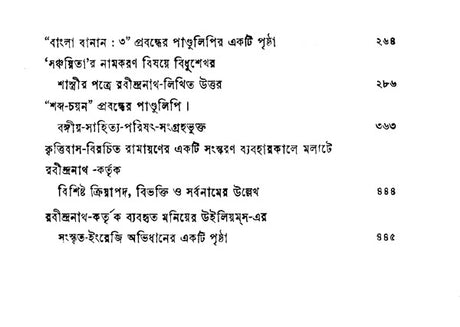 “বাংলা বানান : ৩” প্রবন্ধের পাণ্ডুলিপির একটি পৃষ্ঠা ২৬৪
‘সঞ্চয়িতা’র নামকরণ বিষয়ে বিধুশেখর
শাস্ত্রীর পত্রে রবীন্দ্রনাথ-লিখিত উত্তর ২৮৬
“শব্দ-চয়ন” প্রবন্ধের পাণ্ডুলিপি।
বঙ্গীয়-সাহিত্য-পরিষৎ-সংগ্রহভুক্ত ৩৬৩
কৃত্তিবাস-বিরচিত রামায়ণের একটি সংস্করণ ব্যবহারকালে মলাটে
রবীন্দ্রনাথ -কর্তৃক
বিশিষ্ট ক্রিয়াপদ, বিভক্তি ও সর্বনামের উল্লেখ ৪৪৪
রবীন্দ্রনাথ-কর্তৃক ব্যবহৃত মনিয়ের উইলিয়ম্‌স-এর
সংস্কৃত-ইংরেজি অভিধানের একটি পৃষ্ঠা ৪৪৫